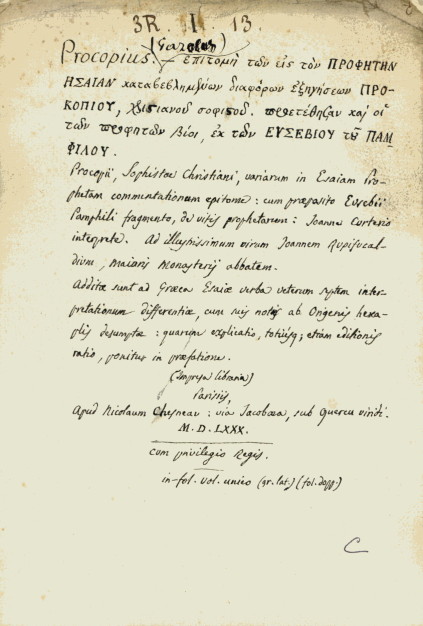 3R. I. 13.
(Gazæus)
Procopius. — ἐπιτομὴ τῶν εἰς τὸν ΠΡΟΦΗΤΗΝ
ΗΣΑΙΑΝ καταβεβλημένων διαφόρων ἐξηγήσεων ΠΡΟ-
ΚΟΠΙΟΥ, χριστιανοῦ σοφιστοῦ. προετέθησαν καὶ οἱ
τῶν προφητῶν βίοι, ἐκ τῶν ΕΥΣΕΒΙΟΥ τοῦ ΠΑΜ-
ΦΙΛΟΥ.
Procopii, Sophistæ Christiani, variarum in Esaiam Pro-
phetam commentationum epitome: cum præposito Eusebii
Pamphili fragmento, de vitis prophetarum: Joanne Curterio
interprete. Ad illustrissimum virum Joannem Rupifucal-
dium, Maioris Monasterij abbatem.
Additæ sunt ad Græca Esaiæ verba veterum septem inter-
pretationum differentiæ, cum suis notis ab Origenis hexa-
plis desumptæ: quarum explicatio, totiusq; etiam editionis
ratio, ponitur in præfatione.
(Impresa libraria)
Parisiis,
Apud Nicolaum Chesneau: via Jacobæa, sub Quercu viridi.
M. D. LXXX.
cum privilegio Regis.
in-fol. vol. unico (gr. lat.) (fol. dopp.)
C